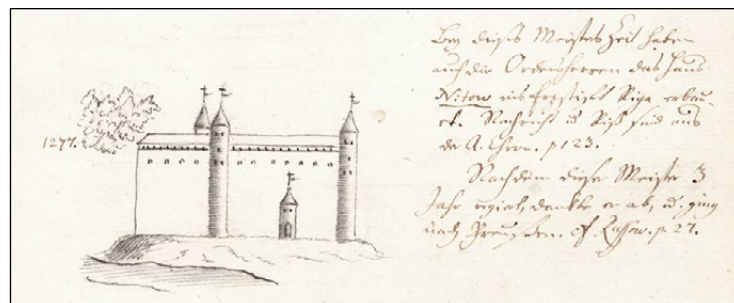 1277.
Bey dieses Meisters Zeit haben
auch die Ordensherren das Haus
Nitow im Erzstift Riga erbau-
et. Nachricht u. Riß sind aus
der A. Chron. p 123.
Nachdem dieser Meister 3
Jahr regiert, dankte er ab, u. ging
nach Preußen. cf p. 27.